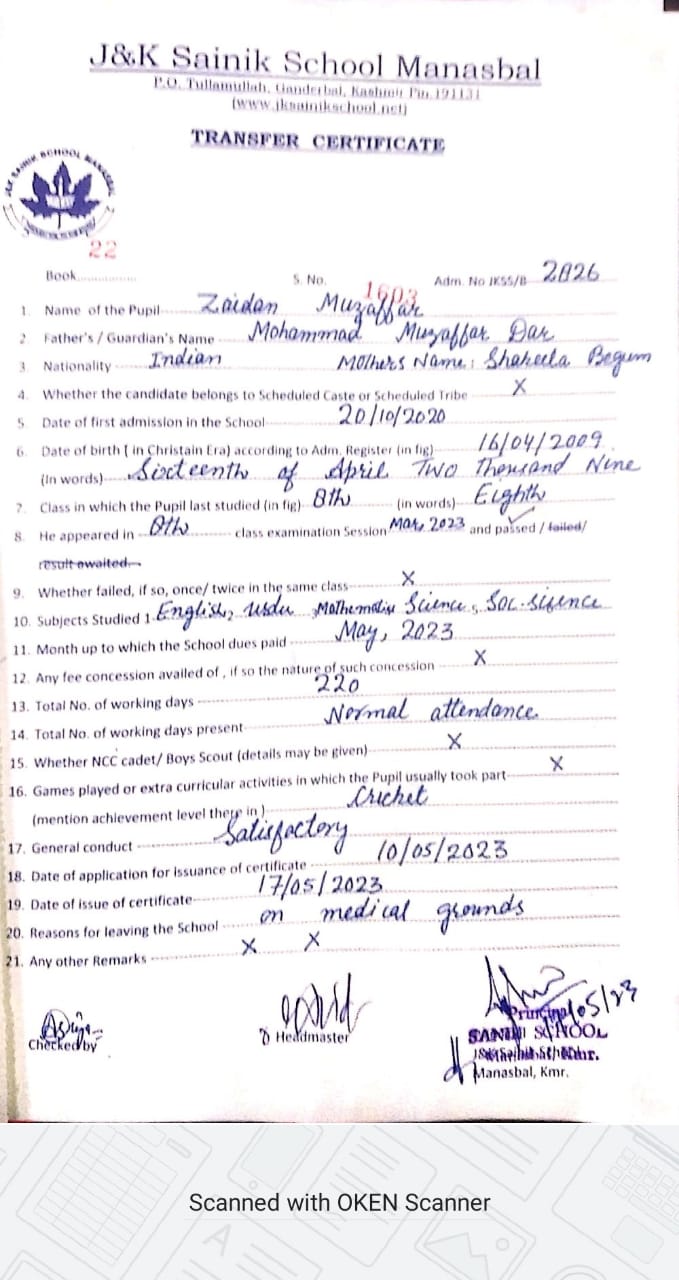 J&K Sainik School Manasbal
P.O. Tullamullah, Ganderbal, Kashmir Pin. 191131
(www.jksainikschool.net)
TRANSFER CERTIFICATE
J&K SAINIK SCHOOL MANASBAL
22
Book S. No. 1603 Adm. No JKSS/B 2826
1. Name of the Pupil Zaidan Muzaffar
2. Father's / Guardian's Name Mohammad Muzaffar Dar
3. Nationality Indian Mothers Name: Shakeela Begum
4. Whether the candidate belongs to Scheduled Caste or Scheduled Tribe X
5. Date of first admission in the School 20/10/2020
6. Date of birth [ in Christain Era) according to Adm. Register (in fig) 16/04/2009
(In words) Sixteenth of April Two Thousand Nine
7. Class in which the Pupil last studied (in fig) 8th (in words) Eighth
8. He appeared in 8th class examination Session Mar, 2023 and passed / failed/
result owaited
9. Whether failed, if so, once/ twice in the same class X
10. Subjects Studied 1 English, Urdu, Mathematix Science, Soc. sience
11. Month up to which the School dues paid May, 2023
12. Any fee concession availed of , if so the nature of such concession X
13. Total No. of working days 220
14. Total No. of working days present Normal attendance
15. Whether NCC cadet/ Boys Scout (details may be given) X
16. Games played or extra curricular activities in which the Pupil usually took part X
(mention achievement level there in ) Cricket
17. General conduct Satisfactory
18. Date of application for issuance of certificate 10/05/2023
19. Date of issue of certificate 17/05/2023
20. Reasons for leaving the School on medical grounds
21. Any other Remarks X X
Checked by Headmaster Principal
SCHOOL
Manasbal, Kmr.
Scanned with OKEN Scanner